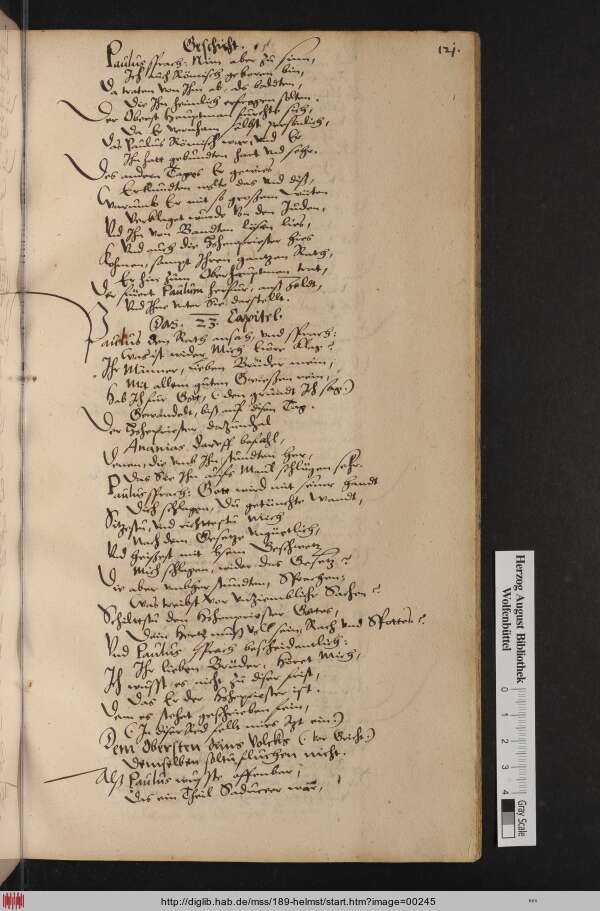 Geschicht.
121.
Paulus sprach: Nun aber zu sinn,
Ich auch Römisch geboren bin,
Da traten von Ihm ab, als beldten,
Die Ihn heimlich erfragen solten.
Der Oberst Hauptman furchte sich,
Da Er vernham selbst persönlich,
Das Paulus Römisch war, und Er
Ihn hatt gebunden hart und sehr.
Des andern Tages Er gewies
Erkundten wolte das und dis,
Warumb Er mit so grossem
Verklaget wurde von den Juden,
Und Ihn von Bandten lösen lies,
Und auch die Hohenpriester hies
Kohmen, sampt Ihrem gantzen Rath,
Er hin zum Oberhauptman trat,
Der füeret Paulum herfür,
Und Ihne unter Sie darstellt.
Das. 23. Capitel.
Paulus den Rath ansach, und sprach:
Was ist wider Mich Eüre Klag?
Ihr Männer, lieben Brüder mein,
Mit allem gutem Gwissen rein,
Hab Ich für Gott, (den grundt Ich sag)
Gewandelt, biß auf disen Tag.
Der Hohepriester dazumhal
Ananias darauff befahl,
Denen, die umb Ihn stundten her,
Das Sie Ihn aufs Maul schlügen sehr.
Paulus sprach: Gott wird mit seiner Handt
Dich schlagen, du getünchte Wandt,
Sitzestu, und richttestu Mich
Nach dem Gesetze
Und heissest mit
Mich schlagen, wider das Gesetz?
Die aber umbher stundten, Sprachen:
Was treibst vor unziemblichte Sachen?
Schiltestu den Hohenpriester Gottes,
Dein Hertz muß voll sein, Rach und Spottes?
Und Paulus sprach bescheidentlich:
Ihr lieben Brüder, Höret Mich,
Ich wust es nicht zu diser frist,
Das Er der Hohepriester ist.
Dan es stehet geschrieben fein,
(In diser Sind fellt mirs Izt ein)
Dem Obersten deins Volcks (vor Gericht)
Demselben soltu fluchen nicht.
Alß Paulus wuste offenbar,
Das ein Theil Saduceer war,
Herzog August Bibliothek
Wolfenbüttel
0 1 2 3 4
Gray Scale
http://diglib.hab.de/mss/189-helmst/start.htm?image=00245